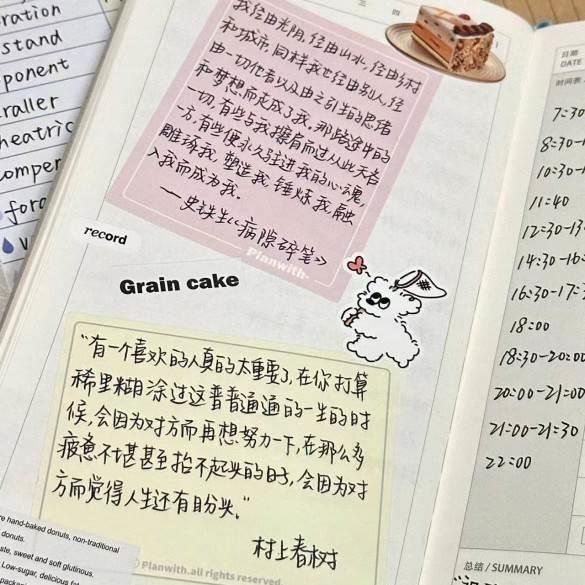 ration
stand
ponent
raller
heatric
omper
for
三 四
我经由光阴,经由山水,经由乡村
和城市,同样我也经由别人,经
由一切他者以及由之引生的思绪
和梦想而走成了我。那路途中的
一切,有些与我擦肩而过从此天各
一方,有些便永久驻进我的心魂,
雕琢我,塑造我,锤炼我,融
入我而成为我。
——史铁生《病隙碎笔》
Planwith·
record
Grain cake
"有一个喜欢的人真的太重要了,在你打算
稀里糊涂过这普普通通的一生的时
候,会因为对方而再想努力一下,在那么多
疲惫不堪甚至抬不起头的日子,会因为对
方而觉得人生还有盼头。"
村上春树
Planwith.all rights reserved
re hand-baked donuts, non-traditional
donuts.
ste, sweet and soft glutinous,
Low-sugar, delicious
日期
DATE
时间表
7:30
8:30-1
10:30-1
11:40
12:30-13
14:30-16:
16:30-17:3
18:00
18:30-20:00
20:00-21:00
21:00-21:30
22:00
总结 / SUMMARY